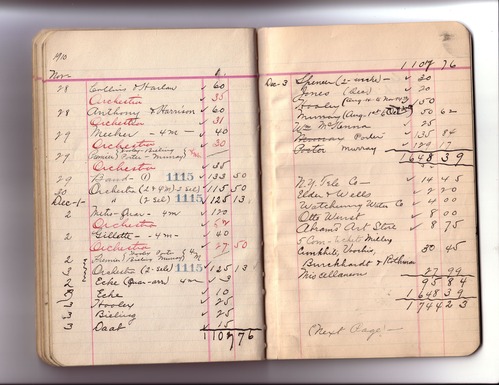 1910
Nov
28 Collins & Harlan ✓ 60
Orchestra ✓ 35
28 Anthony & Harrison ✓ 60
Orchestra ✓ 31
29 Meeker - 4 m - ✓ 40
Orchestra ✓ 30
29 Premier Porter - Murray
Orchestra ✓ 35
29 Band - (1) 1115 ✓ 133 50
30 Orchestra (2 sel) 115 50
Dec - 1 - " (2 sel) 1115 125 13
2 Metro-Quar - 4 m ✓ 120
Orchestra
2 Gillette - 4 m - ✓ 40
Orchestra ✓ 27 50
2 Premier Bieling Murray
Orchestra (2 sel) 1115 125 13
3 Eche (Quar-arr) 4 m ✓ 3
3 Eche ✓ 10
3 Hooley ✓ 25
3 Bieling ✓ 25
3 Daab ✓ 15
1107 76
1107 76
Dec - 3 Spencer (2 - weeks) - ✓ 30
Jones (Dec) ✓ 20
Hooley ✓ 50
Murray 50 62
Wm McKenna ✓ 25
Porter ✓ 135 84
Porter Murray ✓ 129 17
1648 39
N.Y. Tele Co - ✓ 14 45
Elder & Wells ✓ 2 20
Watchung Water Co ✓ 4 00
Otto Wurst ✓ 8 00
Abrams Art Store ✓ 8 75
5 Com - tickets Meeley
Voorhis 30 45
Burckhardt & Rothman
Miscellaneous 27 99
95 84
1648 39
1744 23
(Next Page) -